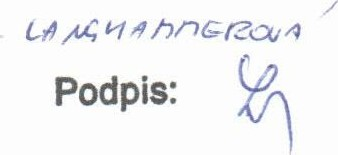 LANGHAMMEROVÁ
Podpis: